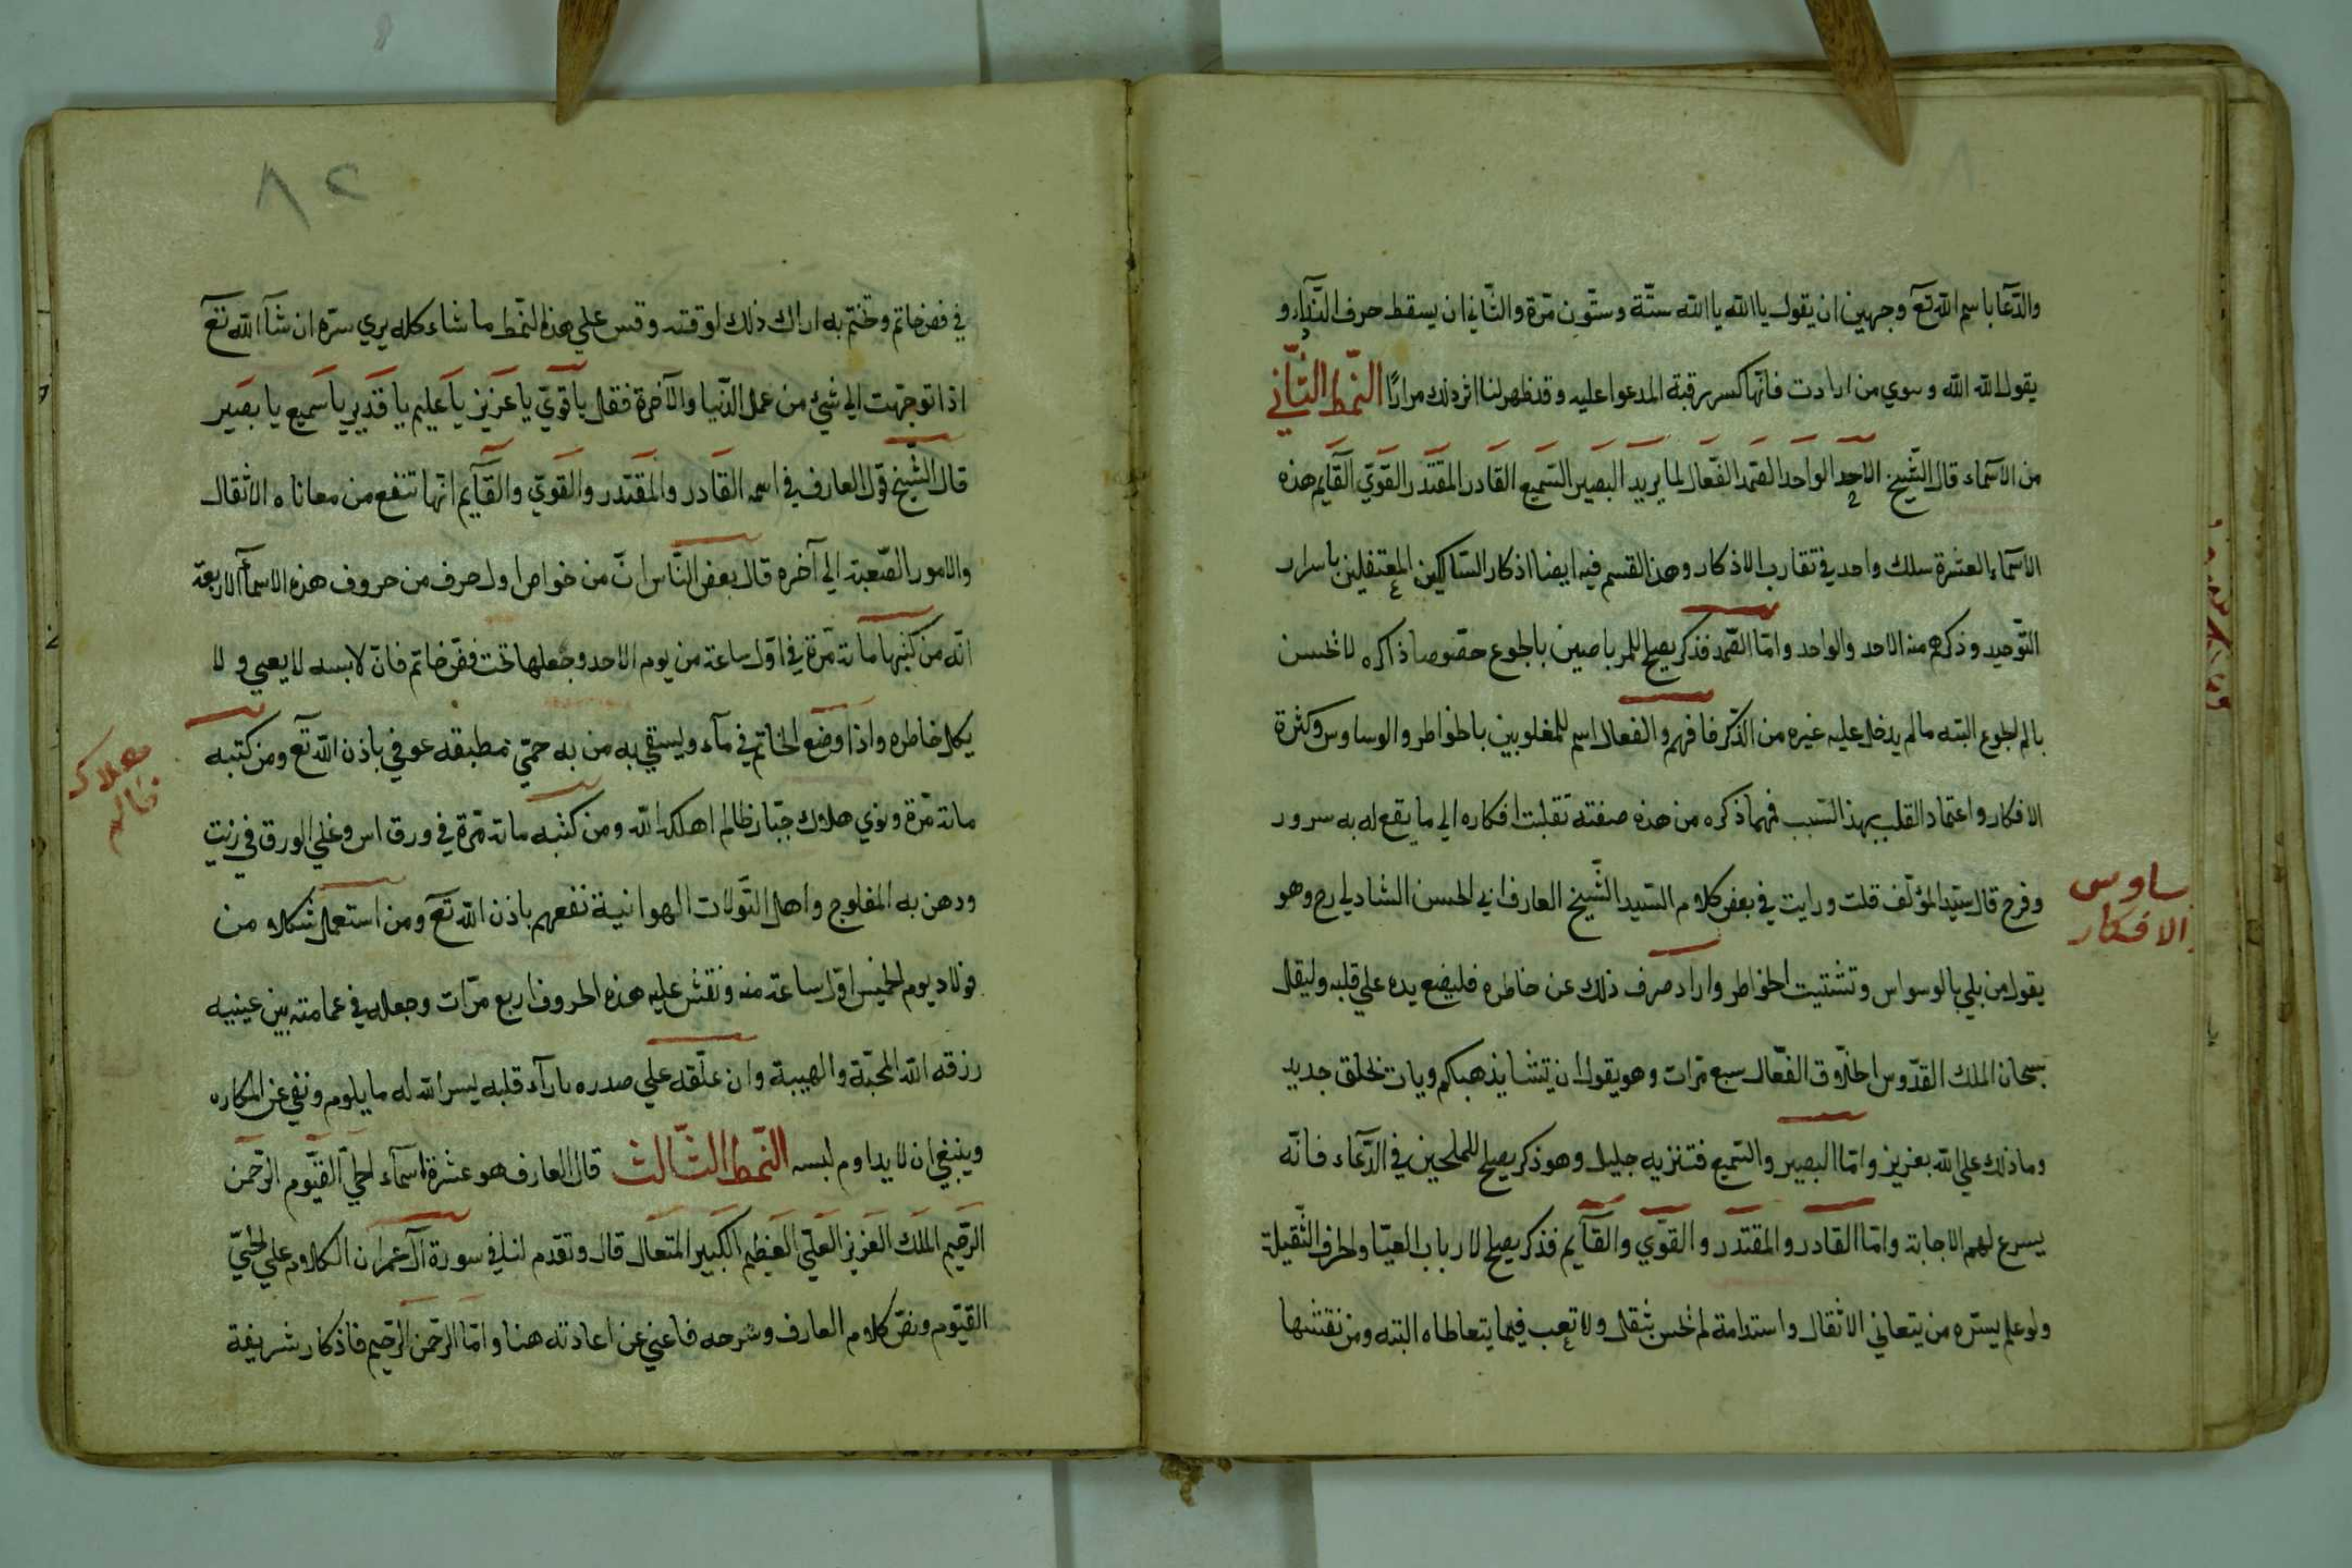 والدّعا باسم الله تع وجهين ان يقول يا الله يا الله ستّة وستّون مرّة والثّاني ان يسقط حرف النّداء و
يقول الله الله وسوي من ارادت فانّها كسر رقبة المدعوا عليه وقد ظهر لنا اثر ذلك مرارًا النّمط الثّاني
من الاسماء قال الشّيخ الاحد الواحد الصّمد الفعّال لما يريد البصير السّميع القادر المقتدر القويّ القايم هذه
الاسماء العشرة سلك واحد في تقارب الاذكار وهذا القسم فيه ايضا اذكار السّالكين باسرار
التّوحيد وذكرهم منه الاحد والواحد وامّا الصّمد فذكر يصلح للمرتاضين بالجوع خصوصا ذاكره لا يحسن
بالم الجوع البته مالم يدخل عليه غيره من الذّكر فافهم والفعال اسم للمغلوبين بالخواطر والوساوس وكثرة
الافكار واعتماد القلب بهذا السّبب فمهما ذكره من هذه صفته تقلبت افكاره الي ما يقع له به سرور
وفرح قال سيّد المؤلّف قلت ورايت في بعض كلام السّيد الشّيخ العارف ابي الحسن الشاذلي رح وهو
يقول من بلي بالوسواس وتشتيت الخواطر واراد صرف ذلك عن خاطره فليضع يده علي قلبه وليقل
سبحان الملك القدّوس الخلّاق الفعّال سبع مرّات وهو يقول ان يشا يذهبكم ويات بخلق جديد
وما ذلك علي الله بعزيز وامّا البصير والسّميع فتنزيه جليل وهو ذكر يصلح للملحين في الدّعاء فانّه
يسرع لهم الاجابة وامّا القادر والمقتدر والقوّي والقآيم فذكر يصلح لارباب والحرف الثّقيلة
ولو علم يسرّه من يتعاني الاثقال واستدامة لم يحس بثقل ولا تعب فيما يتعاطاه البته ومن نقشها
ساوس
الافكار
٨٢
في فصّ خاتم وتختّم به اراك ذلك لوقته وقس علي هذا النّمط ما شاء كله يري سرّه ان شآ الله تع
اذا توجّهت الي شيئ من عمل الدّنيا والآخرة فقل يا قويّ يا عزيز يا عليم يا قدير يا سميع يا بصير
قال الشّيخ قول العارف في اسمه القادر والمقتدر والقويّ والقآيم انّها تنفع من معاناه الاثقال
والامور الصّعبة الي آخره قال بعض النّاس انّ من خواص اول حرف من حروف هذه الاسمآ الاربعة
انّه من كتبها مائة مرّة في اوّل ساعة من يوم الاحد وجعلها تحت فصّ خاتم فانّ لابسه لا يعيي ولا
يكل خاطره واذا وضع الخاتم في مآء وليسقي به من به حمّيّ مطبقه عوفي باذن الله تع ومن كتبه
مائة مرّة ونوي هلاك جبّار ظالم اهلكه الله ومن كتبه مائة مرّة في ورق اس وغلي الورق في زيت
ودهن به المفلوج واهل الهوانية نفعهم باذن الله تع ومن استعمل شكلا من
فولاد يوم الخميس اوّل ساعة منه ونقش عليه هذه الحروف اربع مرّات وجعله في عمامته بين عينيه
رزقه الله المحبّة والهيبة وان علّقه علي صدره بارآء قلبه يسر الله له ما يلوم ونفي عن المكاره
وينبغي ان لا يداوم لبسه النّمط الثّالث قال العارف هو عشرة اسمآء الحيّ القيّوم الرّحمن
الرّحيم الملك العزيز العليّ العظيم الكبير المتعال قال وتقدم لنا في سورة آل عمران الكلام علي الحيّ
القيّوم ونصّ كلام العارف وشرحه فاغني عن اعادته هنا وامّا الرّحمن الرّحيم فاذكار شريفة
هلاك
ظالم